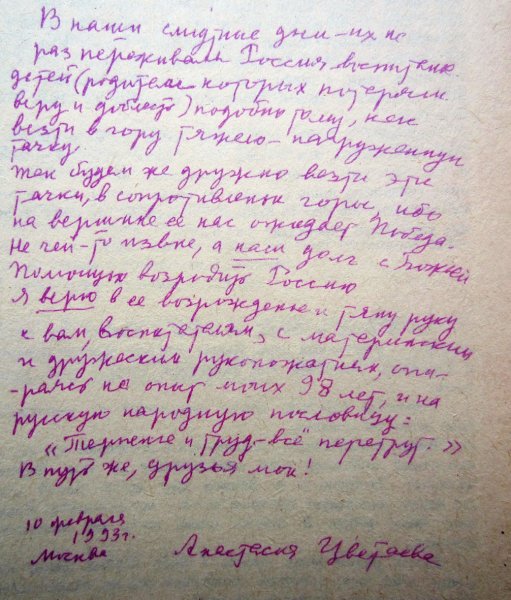 В наши смутные дни – их не
раз переживала Россия, воспитание
детей (родители которых потеряли
веру и доблесть) подобно тому, как
везти в гору тяжело-нагруженную
тачку.
Так будем же дружно везти эти
тачки, в сопротивлении горы, ибо
на вершине ее нас ожидает Победа.
Не чей-то извне, а наш долг с Божьей
Помощью возродить Россию
Я верю в ее возрождение и тяну руку
к вам, воспитателям, с материнским
и дружеским рукопожатием, опи-
-раясь на опыт моих 98 лет, и на
русскую народную пословицу:
«Терпение и труд – всё перетрут.»
В путь же, друзья мои!
10 февраля
1993г.
Москва
Анастасия Цветаева